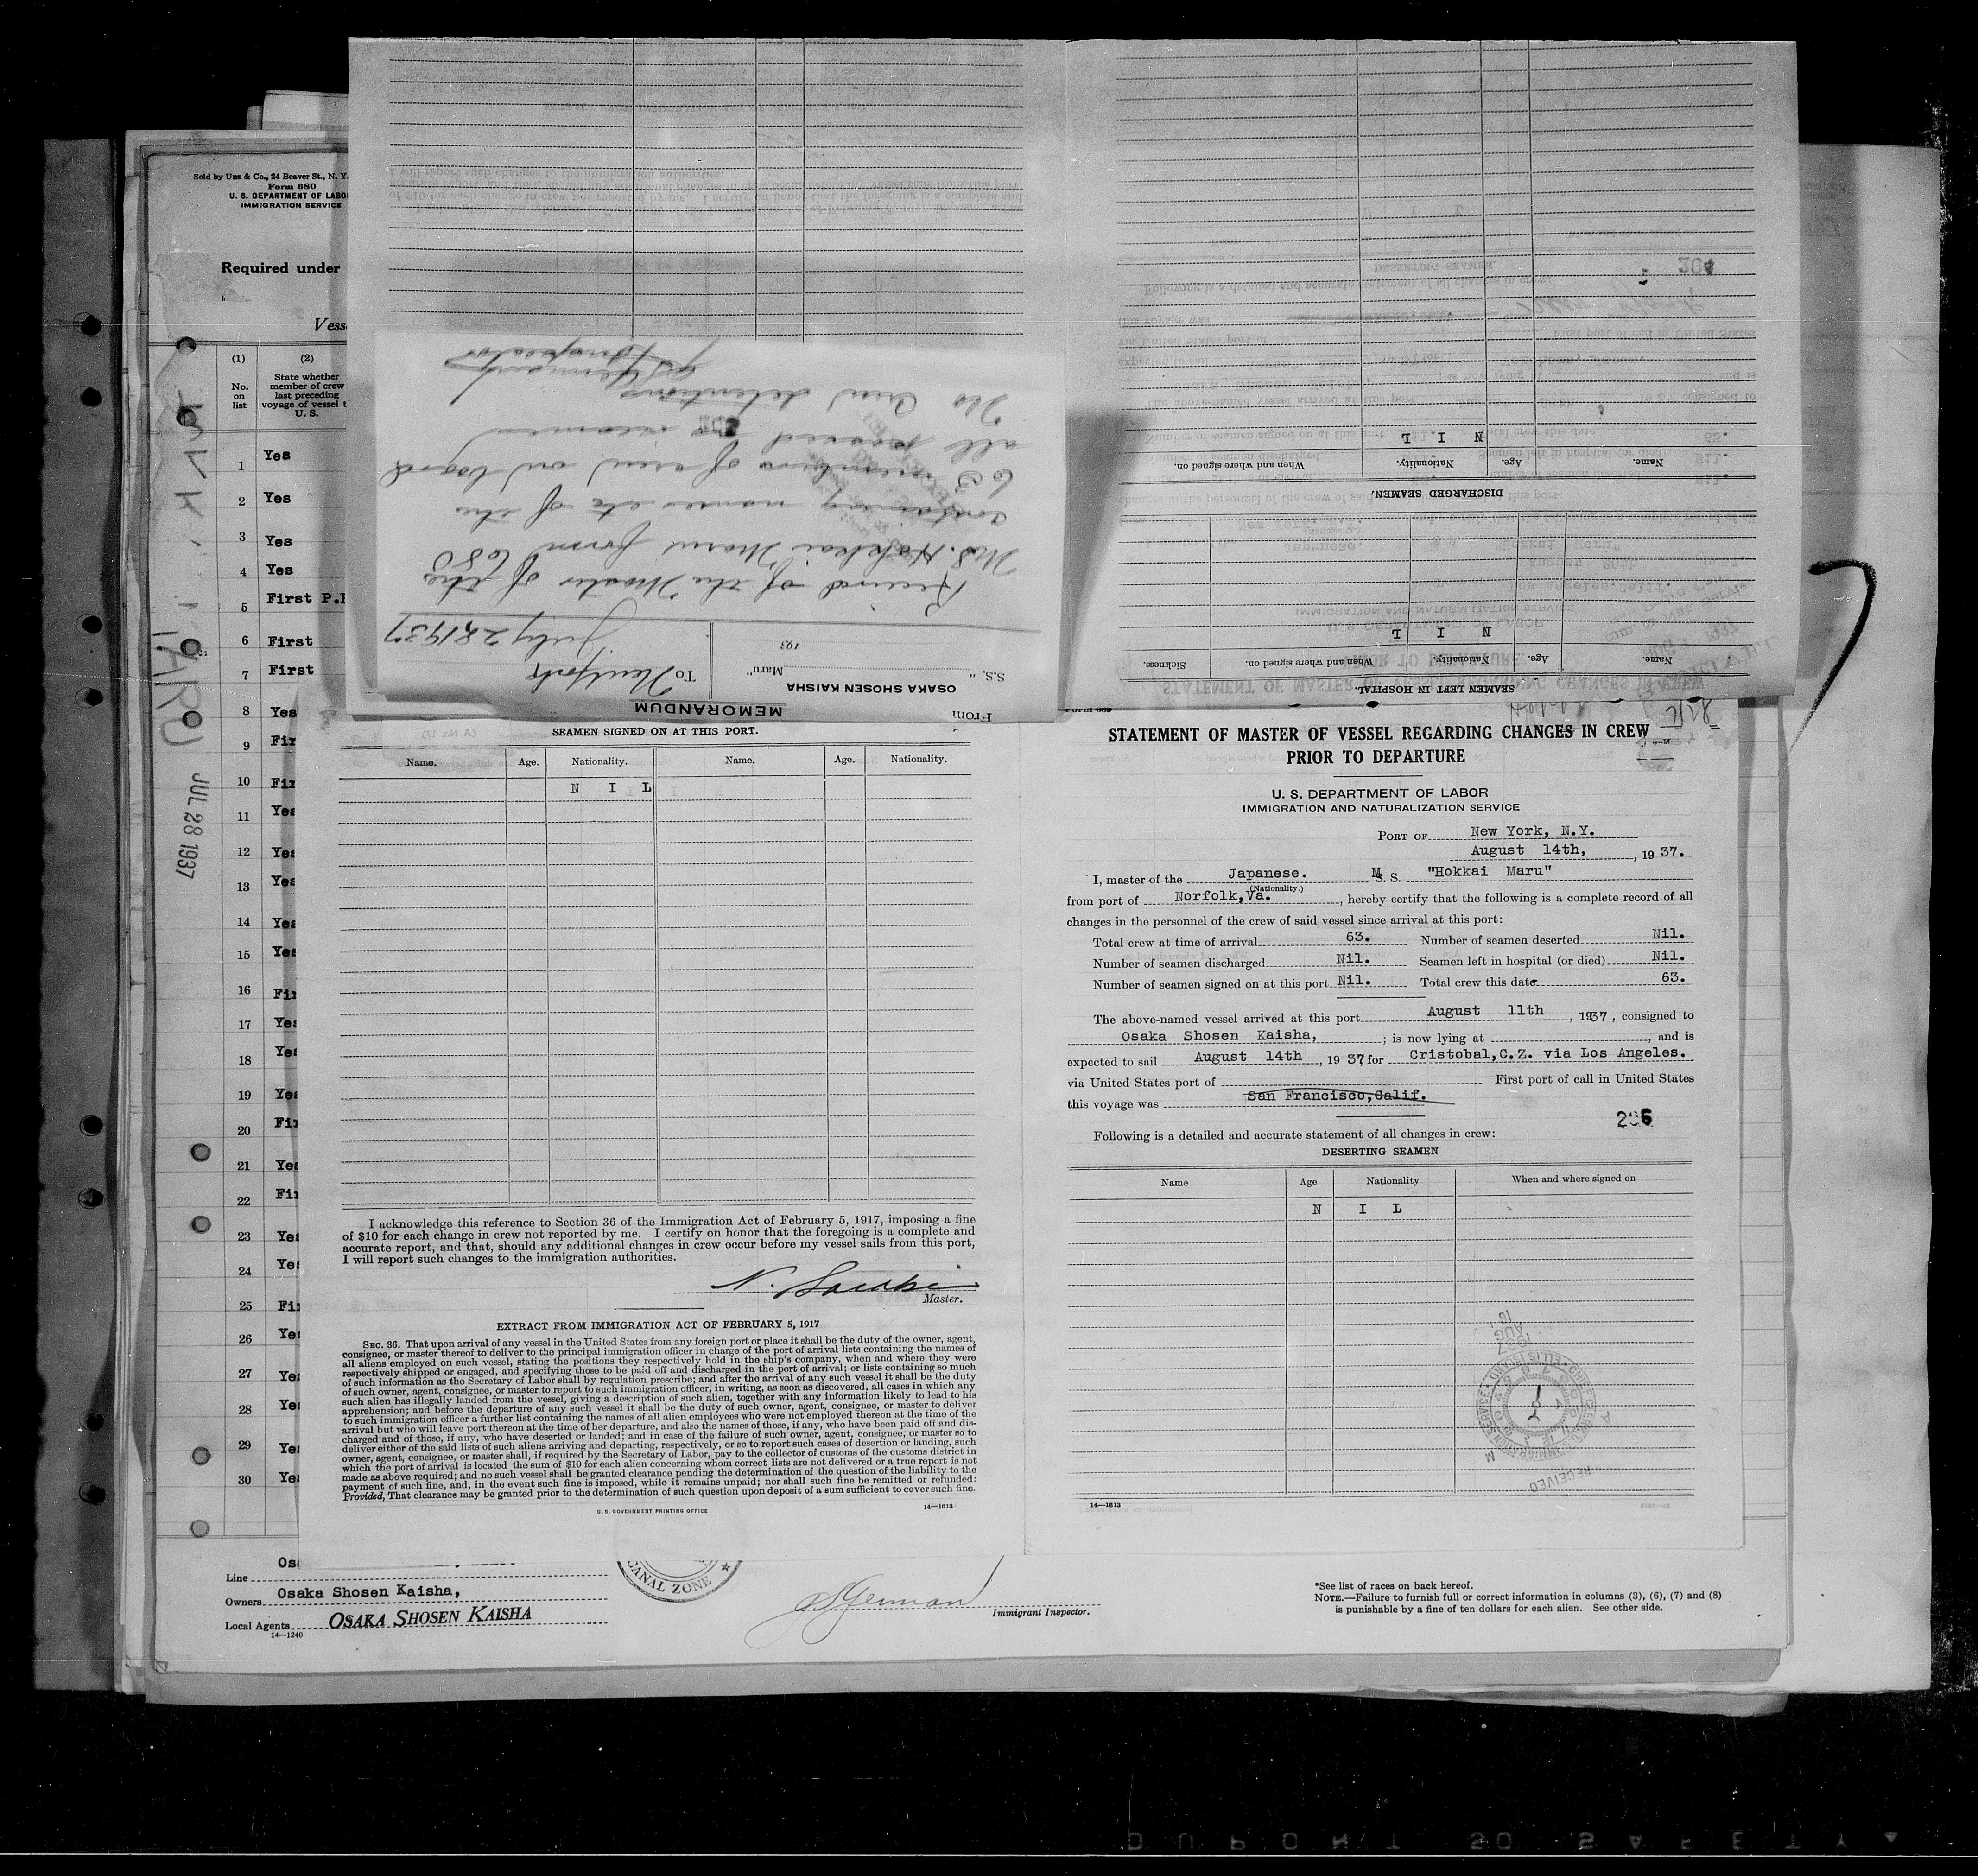 Sold by Unz & Co., 24 Beaver St., N. Y.
Form 680
U. S. DEPARTMENT OF LABOR
IMMIGRATION SERVICE
Required under
Vess
(1)
(2)
No. on list
State whether
member of crew
last preceding
voyage of vessel t
U. S.
1 Yes
2 Yes
3 Yes
4 Yes
5 First P.
6 First
7 First
8 Yes
9 Fir
10 Fir
11 Yes
12 Yes
13 Yes
14 Yes
15 Yes
16 Fir
17 Yes
18 Yes
19 Yes
20 Fir
21 Yes
22 Fir
23 Yes
24 Yes
25 Fir
26 Yes
27 Yes
28 Yes
29 Yes
30 Yes
JUL 28 1937
MEMORANDUM
From
OSAKA SHOSEN KAISHA
S.S. "Maru"
193
To New York
July 28 1937
Received of the Master of the
M.S. Hokkai Maru form 680
containing names etc of the
63 members of crew on board
all passed
No crew detentions
Inspector
SEAMEN LEFT IN HOSPITAL.
Name. Age. Nationality. When and where signed on. Sickness.
N I L
DISCHARGED SEAMEN.
Name. Age. Nationality. When and where signed on.
N I L
SEAMEN SIGNED ON AT THIS PORT.
Name. Age. Nationality. Name. Age. Nationality.
N I L
I acknowledge this reference to Section 36 of the Immigration Act of February 5, 1917, imposing a fine
of $10 for each change in crew not reported by me. I certify on honor that the foregoing is a complete and
accurate report, and that, should any additional changes in crew occur before my vessel sails from this port,
I will report such changes to the immigration authorities.
Master.
EXTRACT FROM IMMIGRATION ACT OF FEBRUARY 5, 1917
SEC. 36. That upon arrival of any vessel in the United States from any foreign port or place it shall be the duty of the owner, agent,
consignee, or master thereof to deliver to the principal immigration officer in charge of the port of arrival lists containing the names of
all aliens employed on such vessel, stating the positions they respectively hold in the ship's company, when and where they were
respectively shipped or engaged, and specifying those to be paid off and discharged in the port of arrival; or lists containing so much
of such information as the Secretary of Labor shall by regulation prescribe; and after the arrival of any such vessel it shall be the duty
of such owner, agent, consignee, or master to report to such immigration officer, in writing, as soon as discovered, all cases in which any
such alien has illegally landed from the vessel, giving a description of such alien, together with any information likely to lead to his
apprehension; and before the departure of any such vessel it shall be the duty of such owner, agent, consignee, or master to deliver
to such immigration officer a further list containing the names of all alien employees who were not employed thereon at the time of the
arrival but who will leave port thereon at the time of her departure, and also the names of those, if any, who have been paid off and dis-
charged and of those, if any, who have deserted or landed; and in case of the failure of such owner, agent, consignee, or master so to
deliver either of the said lists of such aliens arriving and departing, respectively, or so to report such cases of desertion or landing, such
owner, agent, consignee, or master shall, if required by the Secretary of Labor, pay to the collector of customs of the customs district in
which the port of arrival is located the sum of $10 for each alien concerning whom correct lists are not delivered or a true report is not
made as above required; and no such vessel shall be granted clearance pending the determination of the question of the liability to the
payment of such fine, and, in the event such fine is imposed, while it remains unpaid; nor shall such fine be remitted or refunded:
Provided, That clearance may be granted prior to the determination of such question upon deposit of a sum sufficient to cover such fine.
U. S. GOVERNMENT PRINTING OFFICE 14—1613
STATEMENT OF MASTER OF VESSEL REGARDING CHANGES IN CREW
PRIOR TO DEPARTURE
U. S. DEPARTMENT OF LABOR
IMMIGRATION AND NATURALIZATION SERVICE
PORT OF New York, N.Y.
August 14th, , 19 37.
I, master of the Japanese. M S. S. "Hokkai Maru"
(Nationality.)
from port of Norfolk,Va. , hereby certify that the following is a complete record of all
changes in the personnel of the crew of said vessel since arrival at this port:
Total crew at time of arrival 63. Number of seamen deserted Nil.
Number of seamen discharged Nil. Seamen left in hospital (or died) Nil.
Number of seamen signed on at this port Nil. Total crew this date 63.
The above-named vessel arrived at this port August 11th , 1937, consigned to
Osaka Shosen Kaisha, ; is now lying at , and is
expected to sail August 14th , 19 37, for Cristobal,C.Z. via Los Angeles.
via United States port of First port of call in United States
this voyage was San Francisco,Calif.
Following is a detailed and accurate statement of all changes in crew:
DESERTING SEAMEN
Name Age Nationality When and where signed on
N I L
RECEIVED
14—1613
Line
Owners Osaka Shosen Kaisha,
Local Agents OSAKA SHOSEN KAISHA
14—1240
CANAL ZONE
Immigrant Inspector.
*See list of races on back hereof.
NOTE.—Failure to furnish full or correct information in columns (3), (6), (7) and (8)
is punishable by a fine of ten dollars for each alien. See other side.
DUPONT 50 SAFETY